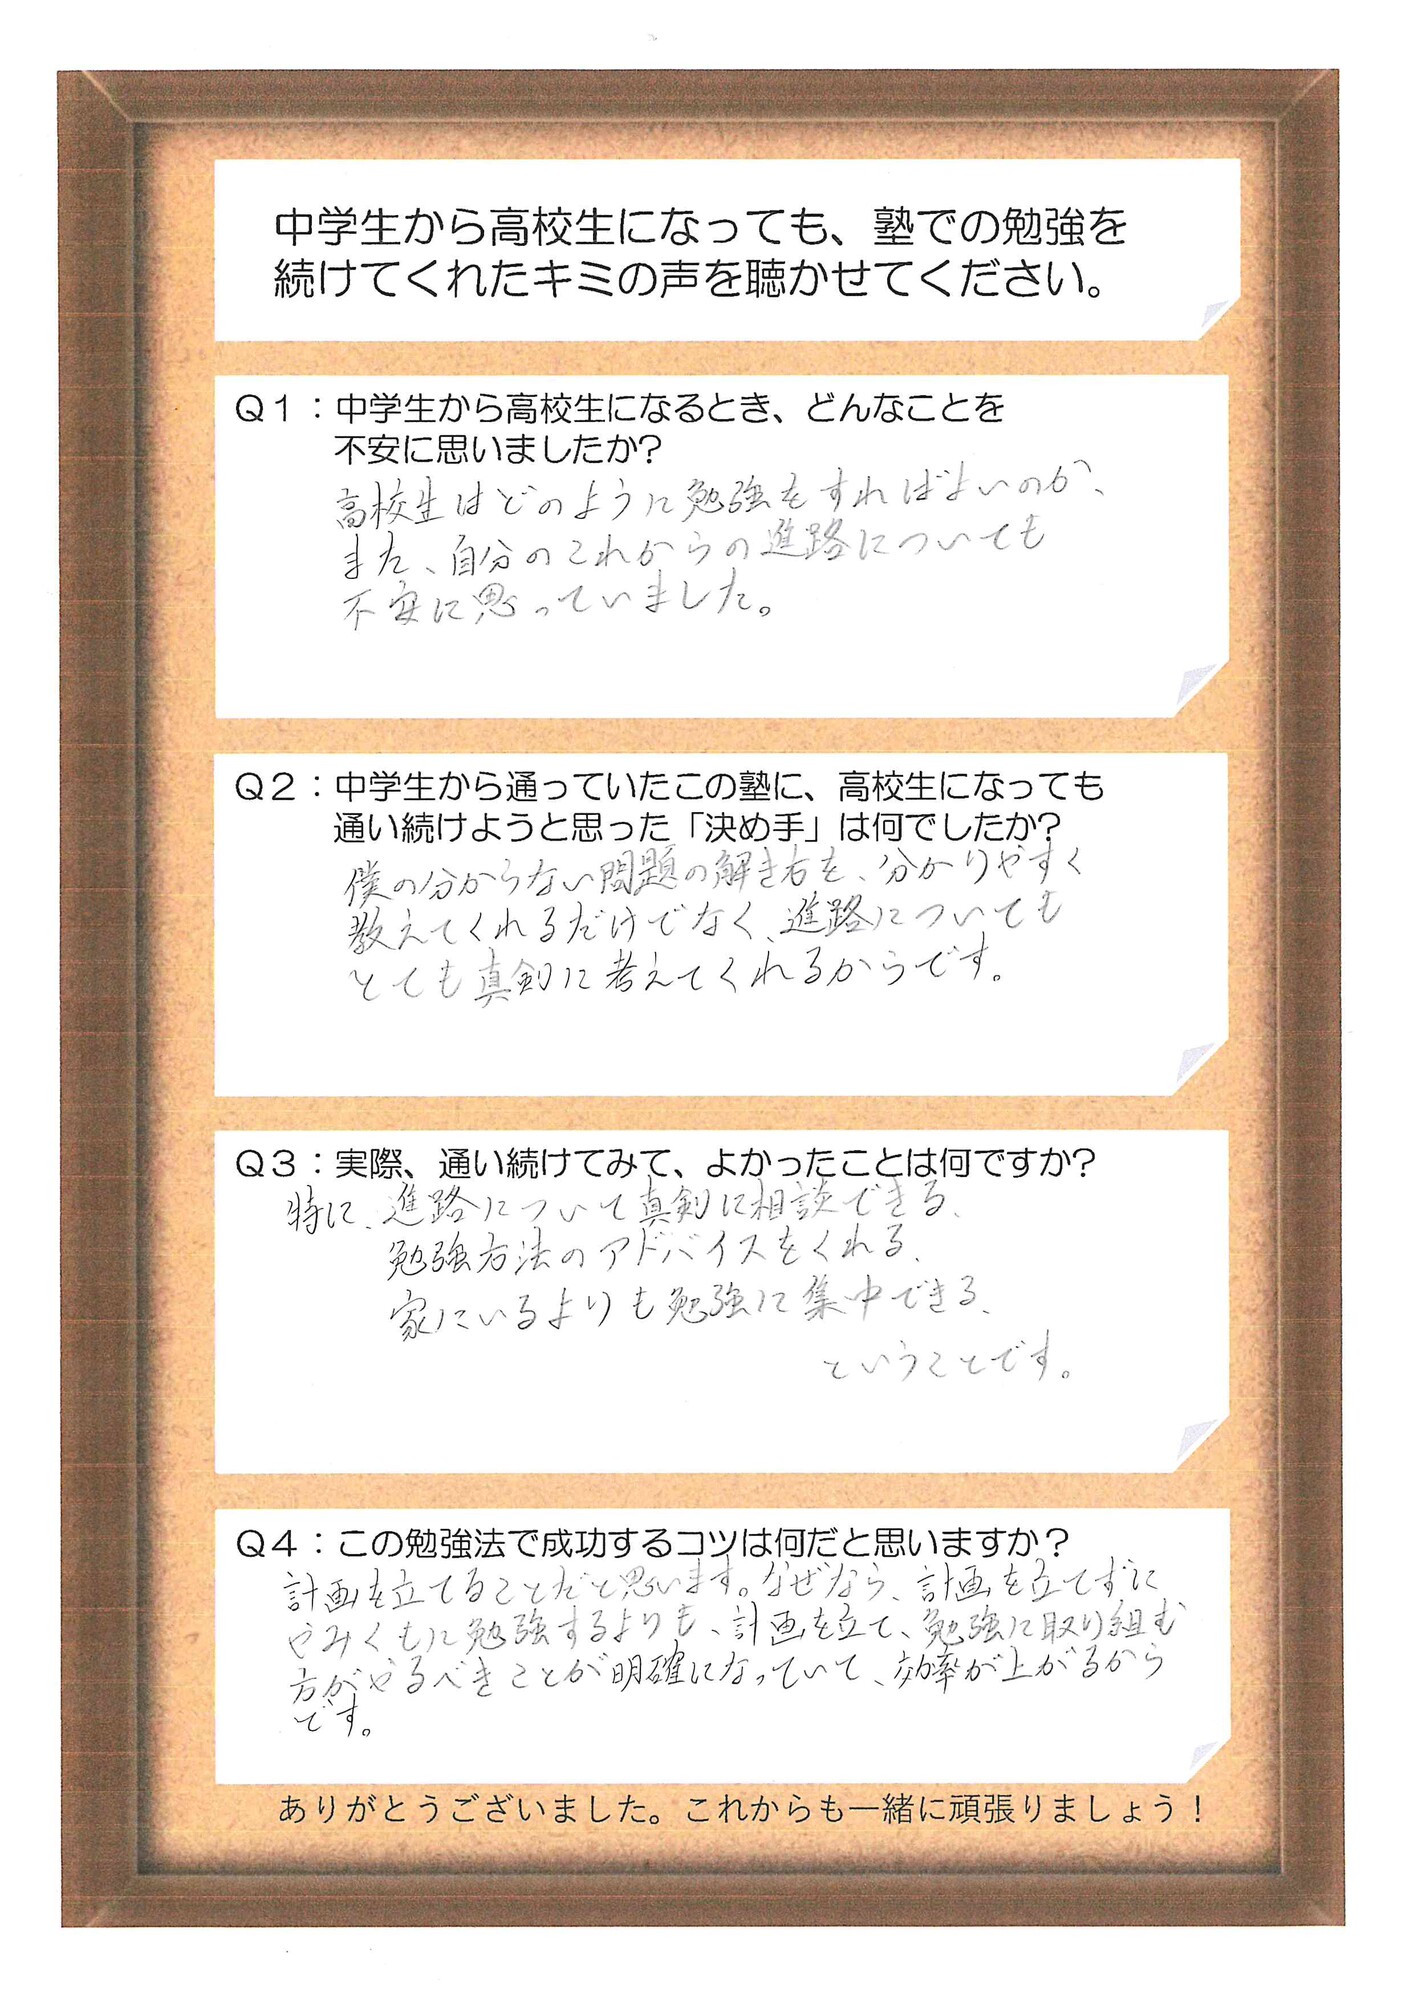 中学生から高校生になっても、塾での勉強を
続けてくれたキミの声を聴かせてください。
Q1：中学生から高校生になるとき、どんなことを
不安に思いましたか？
高校生はどのように勉強をすればよいのか、
また、自分のこれからの進路についても
不安に思っていました。
Q2：中学生から通っていたこの塾に、高校生になっても
通い続けようと思った「決め手」は何でしたか？
僕の分からない問題の解き方を、分かりやすく
教えてくれるだけでなく、進路についても
とても真剣に考えてくれるからです。
Q3：実際、通い続けてみて、よかったことは何ですか？
特に、進路について真剣に相談できる、
勉強方法のアドバイスをくれる、
家にいるよりも勉強に集中できる、
ということです。
Q4：この勉強法で成功するコツは何だと思いますか？
計画を立てることだと思います。なぜなら、計画を立てずに
やみくもに勉強するよりも、計画を立て、勉強に取り組む
方がやるべきことが明確になっていて、効率が上がるから
です。
ありがとうございました。これからも一緒に頑張りましょう！